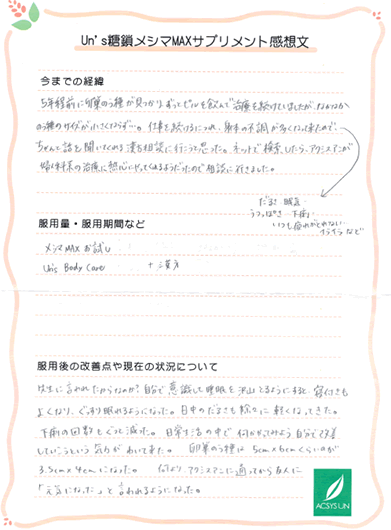 Un's糖鎖メシマMAXサプリメント感想文
今までの経緯
5年程前に卵巣のう種が見つかり、ずっとピルを飲んで治療を続けていましたが、なかなか
のう種のサイズが小さくならず…。仕事を続けるにつれ、身体の不調が多くなって来たので、
ちゃんと話を聞いてくれる漢方相談に行こうと思った。ネットで検索したら、アクシスアンが
婦人科系の治療に熱心にやってくれるようだったので相談に行きました。
だるさ 眠気
うつっぽさ 下痢
いつも疲れがとれない
イライラ など
服用量・服用期間など
メシマMAXお試し
Un's Body Care + 漢方
服用後の改善点や現在の状況について
先生に言われたからなのか?自分で意識して睡眠を沢山とるようにすると、寝付きも
よくなり、ぐっすり眠れるようになった。日中のだるさも徐々に軽くなってきた。
下痢の回数もぐっと減った。日常生活の中で何かやってみよう自分で改善
していこうという気力がわいてきた。 卵巣のう種は5cm×6cmくらいが
3.5cm×4cmになった。 何より、アクシスアンに通ってから友人に
「元気になった」と言われるようになった。
ACSYS UN